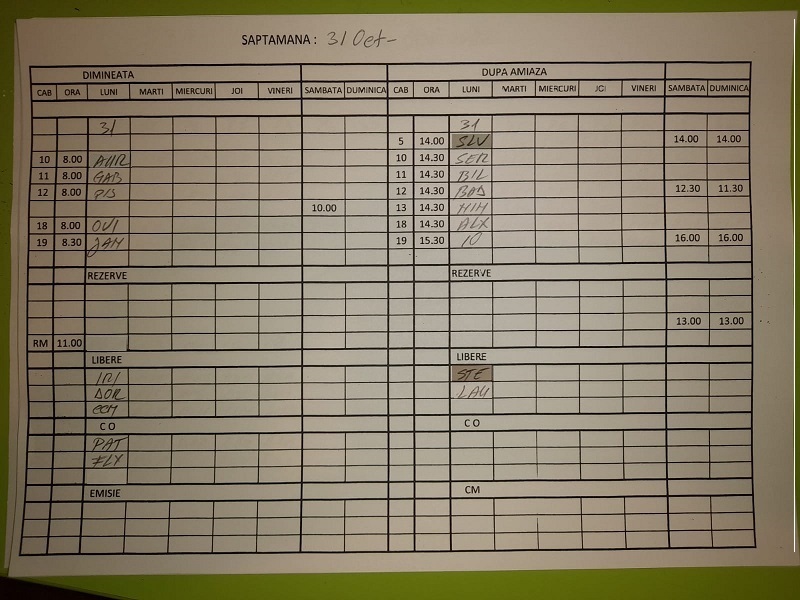 SAPTAMANA : 31 Oct-
DIMINEATA DUPA AMIAZA
CAB ORA LUNI MARTI MIERCURI JOI VINERI SAMBATA DUMINICA CAB ORA LUNI MARTI MIERCURI JOI VINERI SAMBATA DUMINICA
31 31
5 14.00 SLV 14.00 14.00
10 8.00 10 14.30 SER
11 8.00 GAB 11 14.30 BIL
12 8.00 12 14.30 BOD 12.30 11.30
10.00 13 14.30 MIH
18 8.00 OVI 18 14.30 ALX
19 8.30 19 15.30 10 16.00 16.00
REZERVE REZERVE
13.00 13.00
RM 11.00
LIBERE LIBERE
IRI STE
DOR LAU
C O C O
PAT
FLX
EMISIE CM